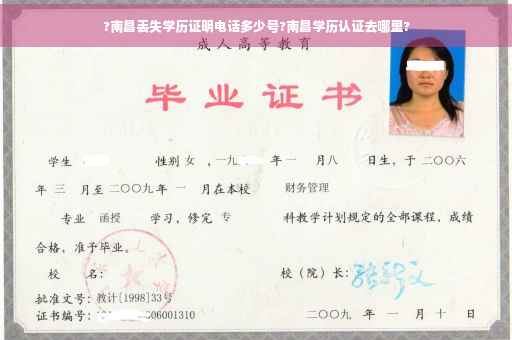 ?南昌丢失学历证明电话多少号?南昌学历认证去哪里?
成人高等教育
毕业证书
学生 性别 女 ，一九 年 一 月 八 日生，于 二〇〇六
年 三 月至 二〇〇九 年 一 月在本校 财务管理
专业 函授 学习，修完 专 科教学计划规定的全部课程，成绩
合格，准予毕业。
校 名： 校（院）长：
批准文号：教计[1998]33号
证书编号： 06001310 二〇〇九 年 一 月 十 日